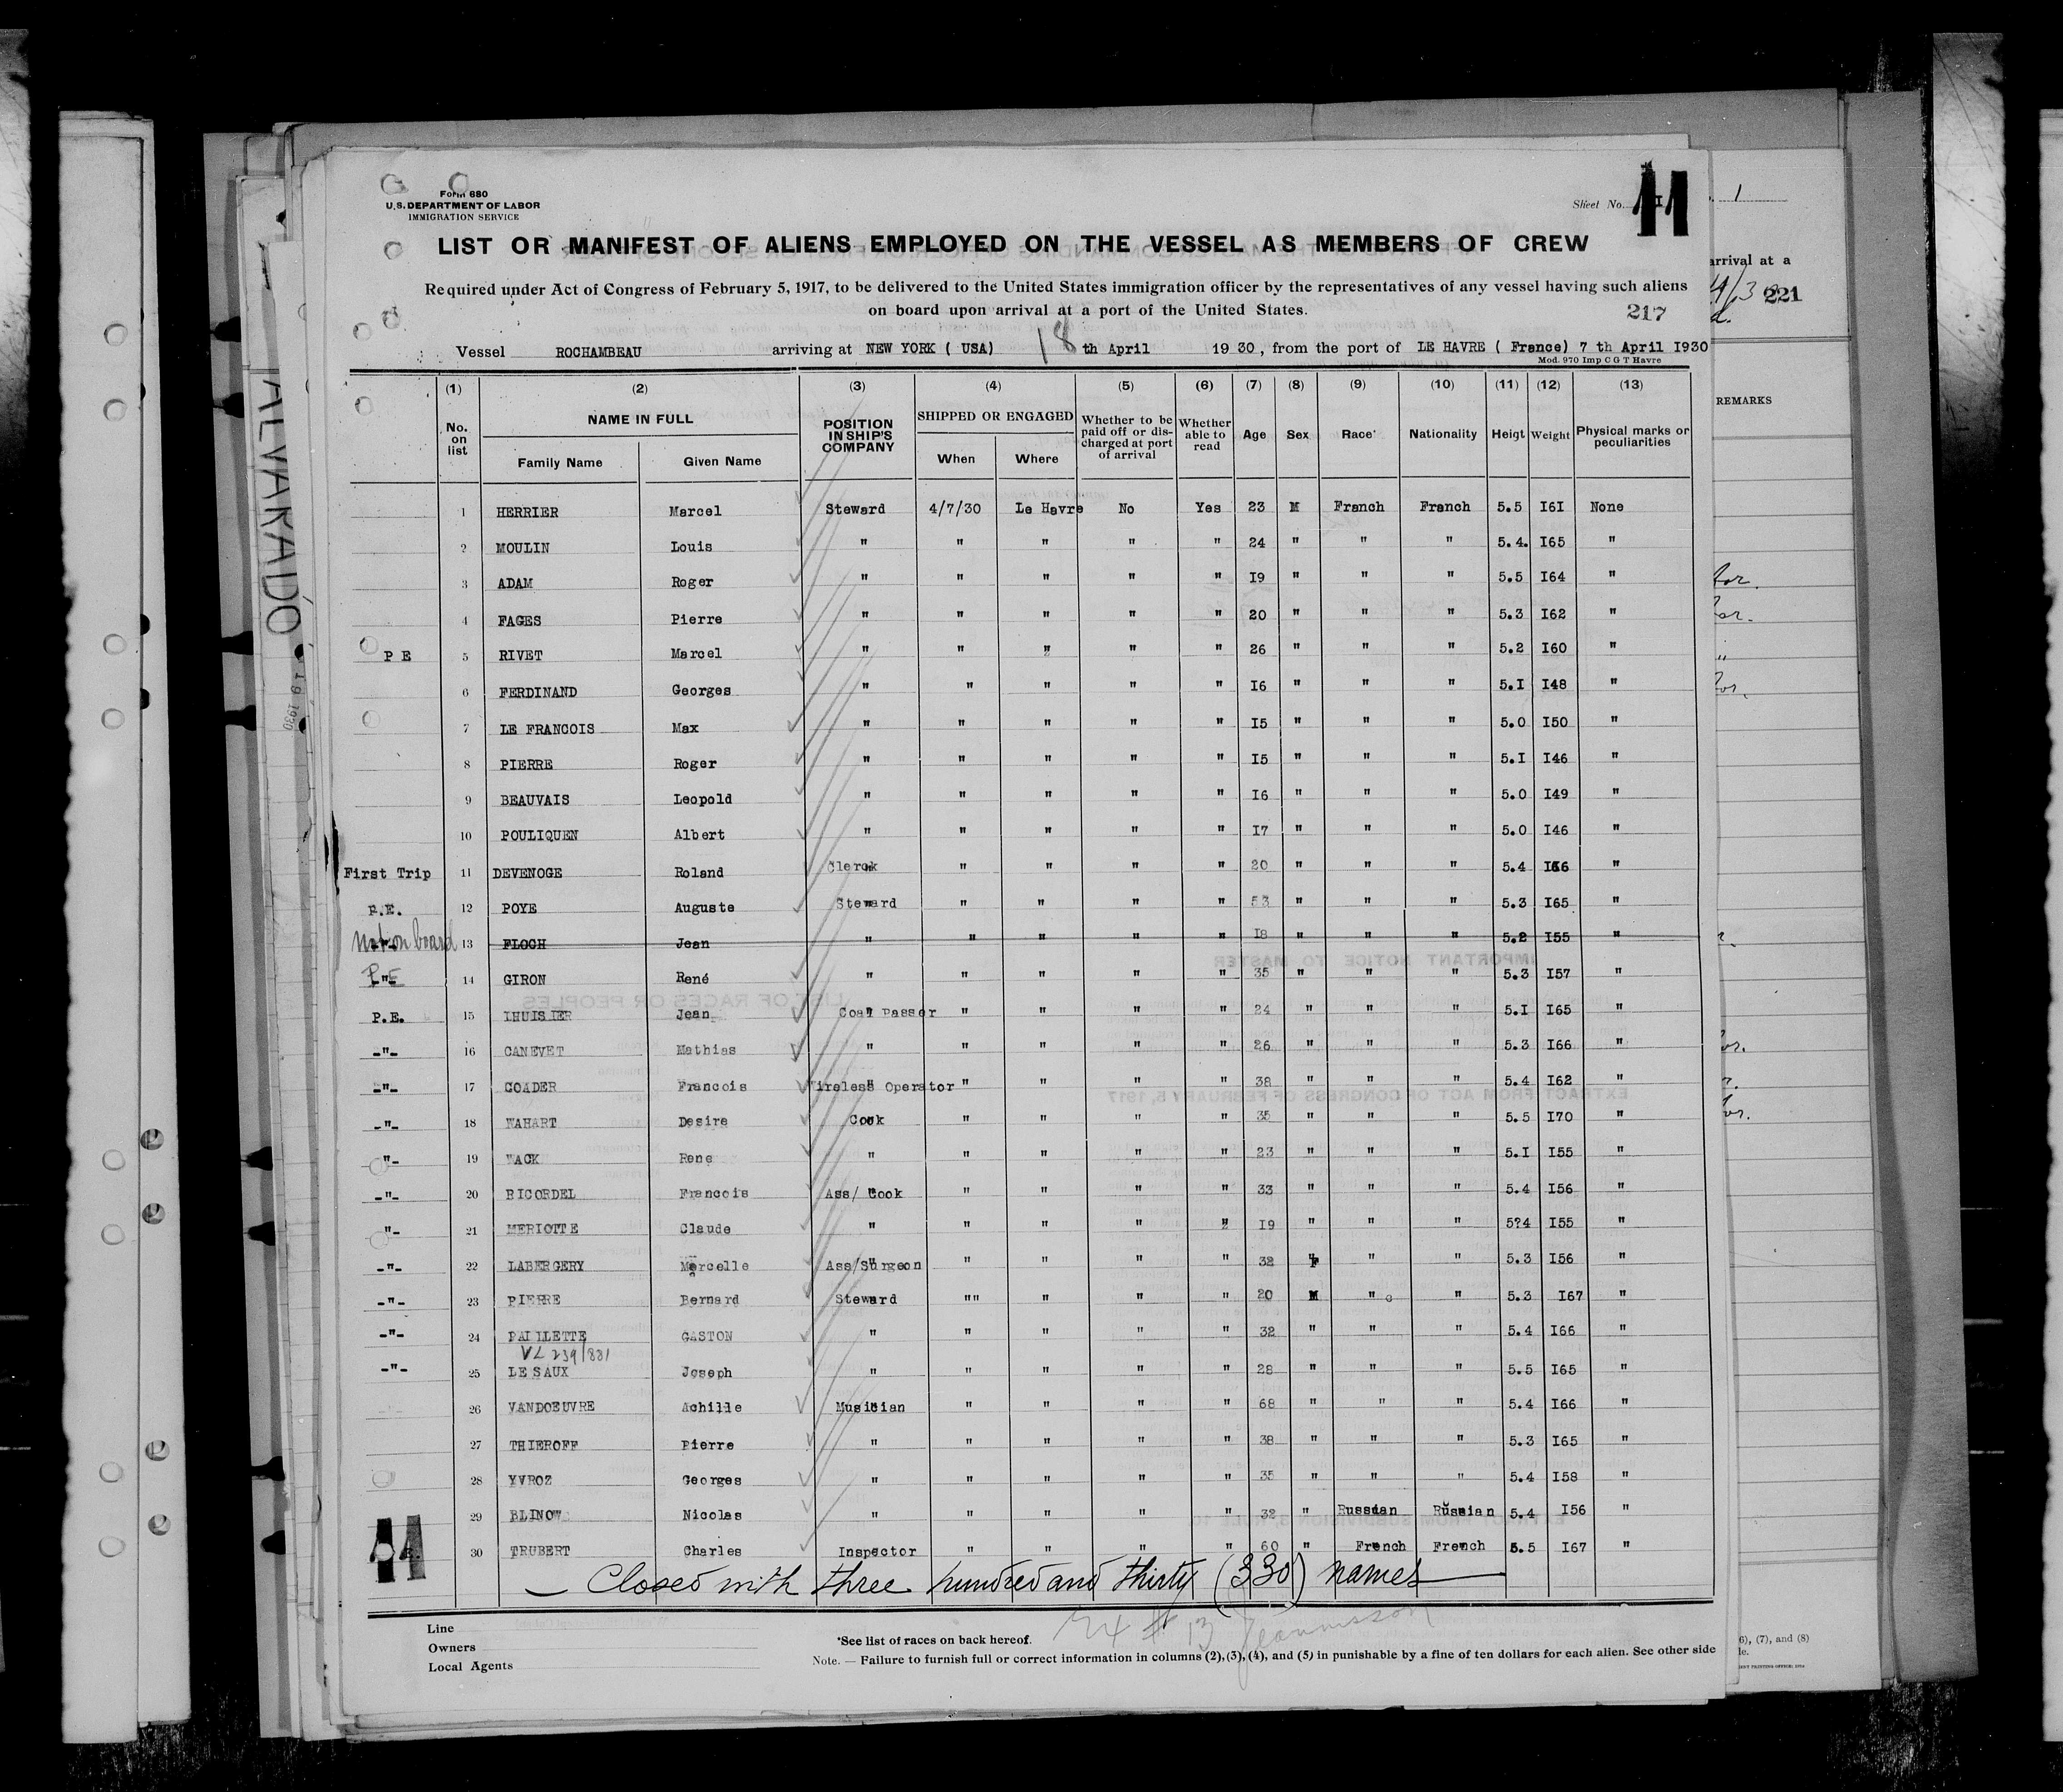 Form 680
U.S. DEPARTMENT OF LABOR
IMMIGRATION SERVICE
Sheet No. 11
LIST OR MANIFEST OF ALIENS EMPLOYED ON THE VESSEL AS MEMBERS OF CREW
Required under Act of Congress of February 5, 1917, to be delivered to the United States immigration officer by the representatives of any vessel having such aliens
on board upon arrival at a port of the United States.
217
Vessel ROCHAMBEAU arriving at NEW YORK ( USA) 18 th April 1930, from the port of LE HAVRE ( France) 7 th April I930
Mod. 970 Imp C G T Havre
(1) (2) (3) (4) (5) (6) (7) (8) (9) (10) (11) (12) (13)
No. on list NAME IN FULL Family Name Given Name POSITION IN SHIP'S COMPANY SHIPPED OR ENGAGED When Where Whether to be paid off or discharged at port of arrival Whether able to read Age Sex Race* Nationality Heigt Weight Physical marks or peculiarities
1 HERRIER Marcel Steward 4/7/30 Le Havre No Yes 23 M Franch Franch 5.5 I6I None
2 MOULIN Louis " " " " " 24 " " " 5.4. I65 "
3 ADAM Roger " " " " " I9 " " " 5.5 I64 "
4 FAGES Pierre " " " " " 20 " " " 5.3 I62 "
P E 5 RIVET Marcel " " " " " 26 " " " 5.2 I60 "
6 FERDINAND Georges " " " " " I6 " " " 5.I I48 "
7 LE FRANCOIS Max " " " " " I5 " " " 5.0 I50 "
8 PIERRE Roger " " " " " I5 " " " 5.I I46 "
9 BEAUVAIS Leopold " " " " " I6 " " " 5.0 I49 "
10 POULIQUEN Albert " " " " " I7 " " " 5.0 I46 "
First Trip 11 DEVENOGE Roland Clerck " " " " 20 " " " 5.4 I66 "
P.E. 12 POYE Auguste Steward " " " " 53 " " " 5.3 I65 "
Not on board 13 FLOCH Jean " " " " " I8 " " " 5.2 I55 "
P.E 14 GIRON René " " " " " 35 " " " 5.3 I57 "
P.E. 15 LHUISIER Jean Coal Passer " " " " 24 " " " 5.I I65 "
-"- 16 CANEVET Mathias " " " " " 26 " " " 5.3 I66 "
-"- 17 COADER Francois Wireless Operator " " " " 38 " " " 5.4 I62 "
-"- 18 WAHART Desire Cook " " " " 35 " " " 5.5 I70 "
-"- 19 WACK Rene " " " " " 23 " " " 5.I I55 "
-"- 20 RICORDEL Francois Ass/ Cook " " " " 33 " " " 5.4 I56 "
-"- 21 MERIOTTE Claude " " " " " I9 " " " 5?4 I55 "
-"- 22 LABERGERY Marcelle Ass/Surgeon " " " " 32 F " " 5.3 I56 "
-"- 23 PIERRE Bernard Steward "" " " " 20 M " " 5.3 I67 "
-"- 24 PAILLETTE GASTON " " " " " 32 " " " 5.4 I66 "
VL 239/881
-"- 25 LE SAUX Joseph " " " " " 28 " " " 5.5 I65 "
26 VANDOEUVRE Achille Musician " " " " 68 " " " 5.4 I66 "
27 THIEROFF Pierre " " " " " 38 " " " 5.3 I65 "
28 YVROZ Georges " " " " " 35 " " " 5.4 I58 "
29 BLINOW Nicolas " " " " " 32 " Russian Russian 5.4 I56 "
30 TRUBERT Charles Inspector " " " " 60 " French French 5.5 I67 "
11
Closed with three hundred and thirty (330) names
Line
Owners
Local Agents
*See list of races on back hereof.
Note. — Failure to furnish full or correct information in columns (2),(3),(4), and (5) in punishable by a fine of ten dollars for each alien. See other side
ALVARADO
1
arrival at a
221
REMARKS
6), (7), and (8)